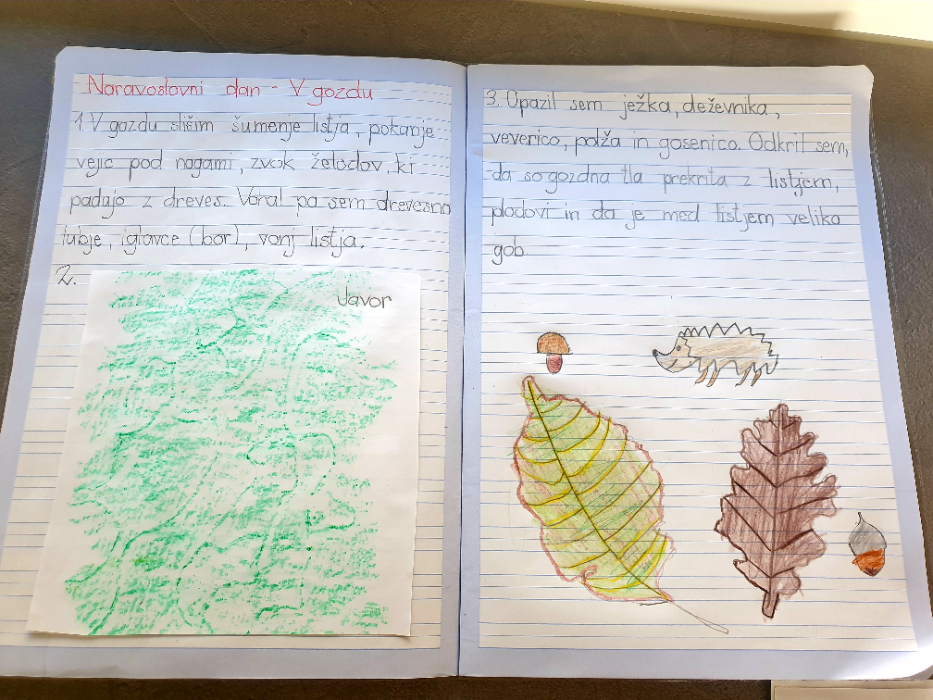 Naravoslovni dan - V gozdu
1. V gozdu slišim šumenje listja, pokanje
vejic pod nogami, zvok želodov, ki
padajo z dreves. Vohal pa sem drevesno
lubje, iglavce (bor), vonj listja.
2.
Javor
3. Opazil sem ježka, deževnika,
veverico, polža in gosenico. Odkril sem,
da so gozdna tla prekrita z listjem,
plodovi in da je med listjem veliko
gob.